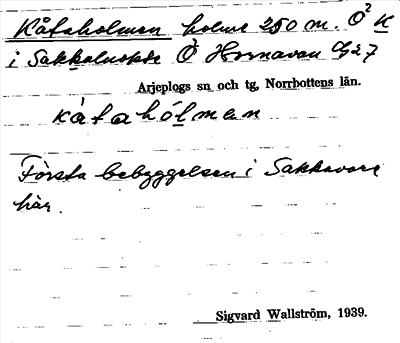 Kåtaholmen holme 250 m. Ö² K
i Sakkaluokte Ö Hornavan G27
Arjeplogs sn och tg, Norrbottens län.
kå̀tahólmen
Första bebyggelsen i Sakkavare
här.
Sigvard Wallström, 1939.